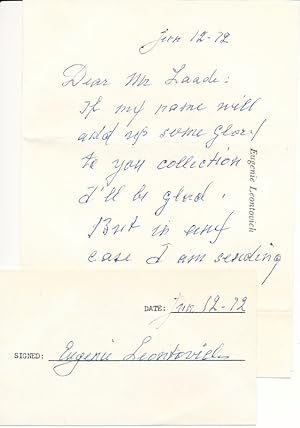 Jun 12-72
Dear Mr Laade:
If my name will
add up some glory
to you collection
I'll be glad.
But in any
case I am sending
Eugenie Leontovich
DATE: Jun 12-72
SIGNED: Eugenie Leontovich